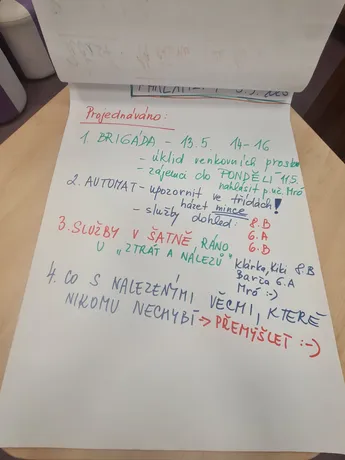 Projednáváno:
1. BRIGÁDA - 13.5. 14-16
- úklid venkovních prostor
- zájemci do PONDĚLÍ 11.5.
nahlásit p. uč. Mró
2. AUTOMAT - upozornit ve třídách!
házet mince
- služby dohled: 8.B
6.A
6.B
3. SLUŽBY V ŠATNĚ, RÁNO
U „ZTRÁT A NÁLEZŮ"
Klárka, Kiki 8.B
Barča 6.A
Mró :-)
4. CO S NALEZENÝMI VĚCMI, KTERÉ
NIKOMU NECHYBÍ → PŘEMÝŠLET :-)